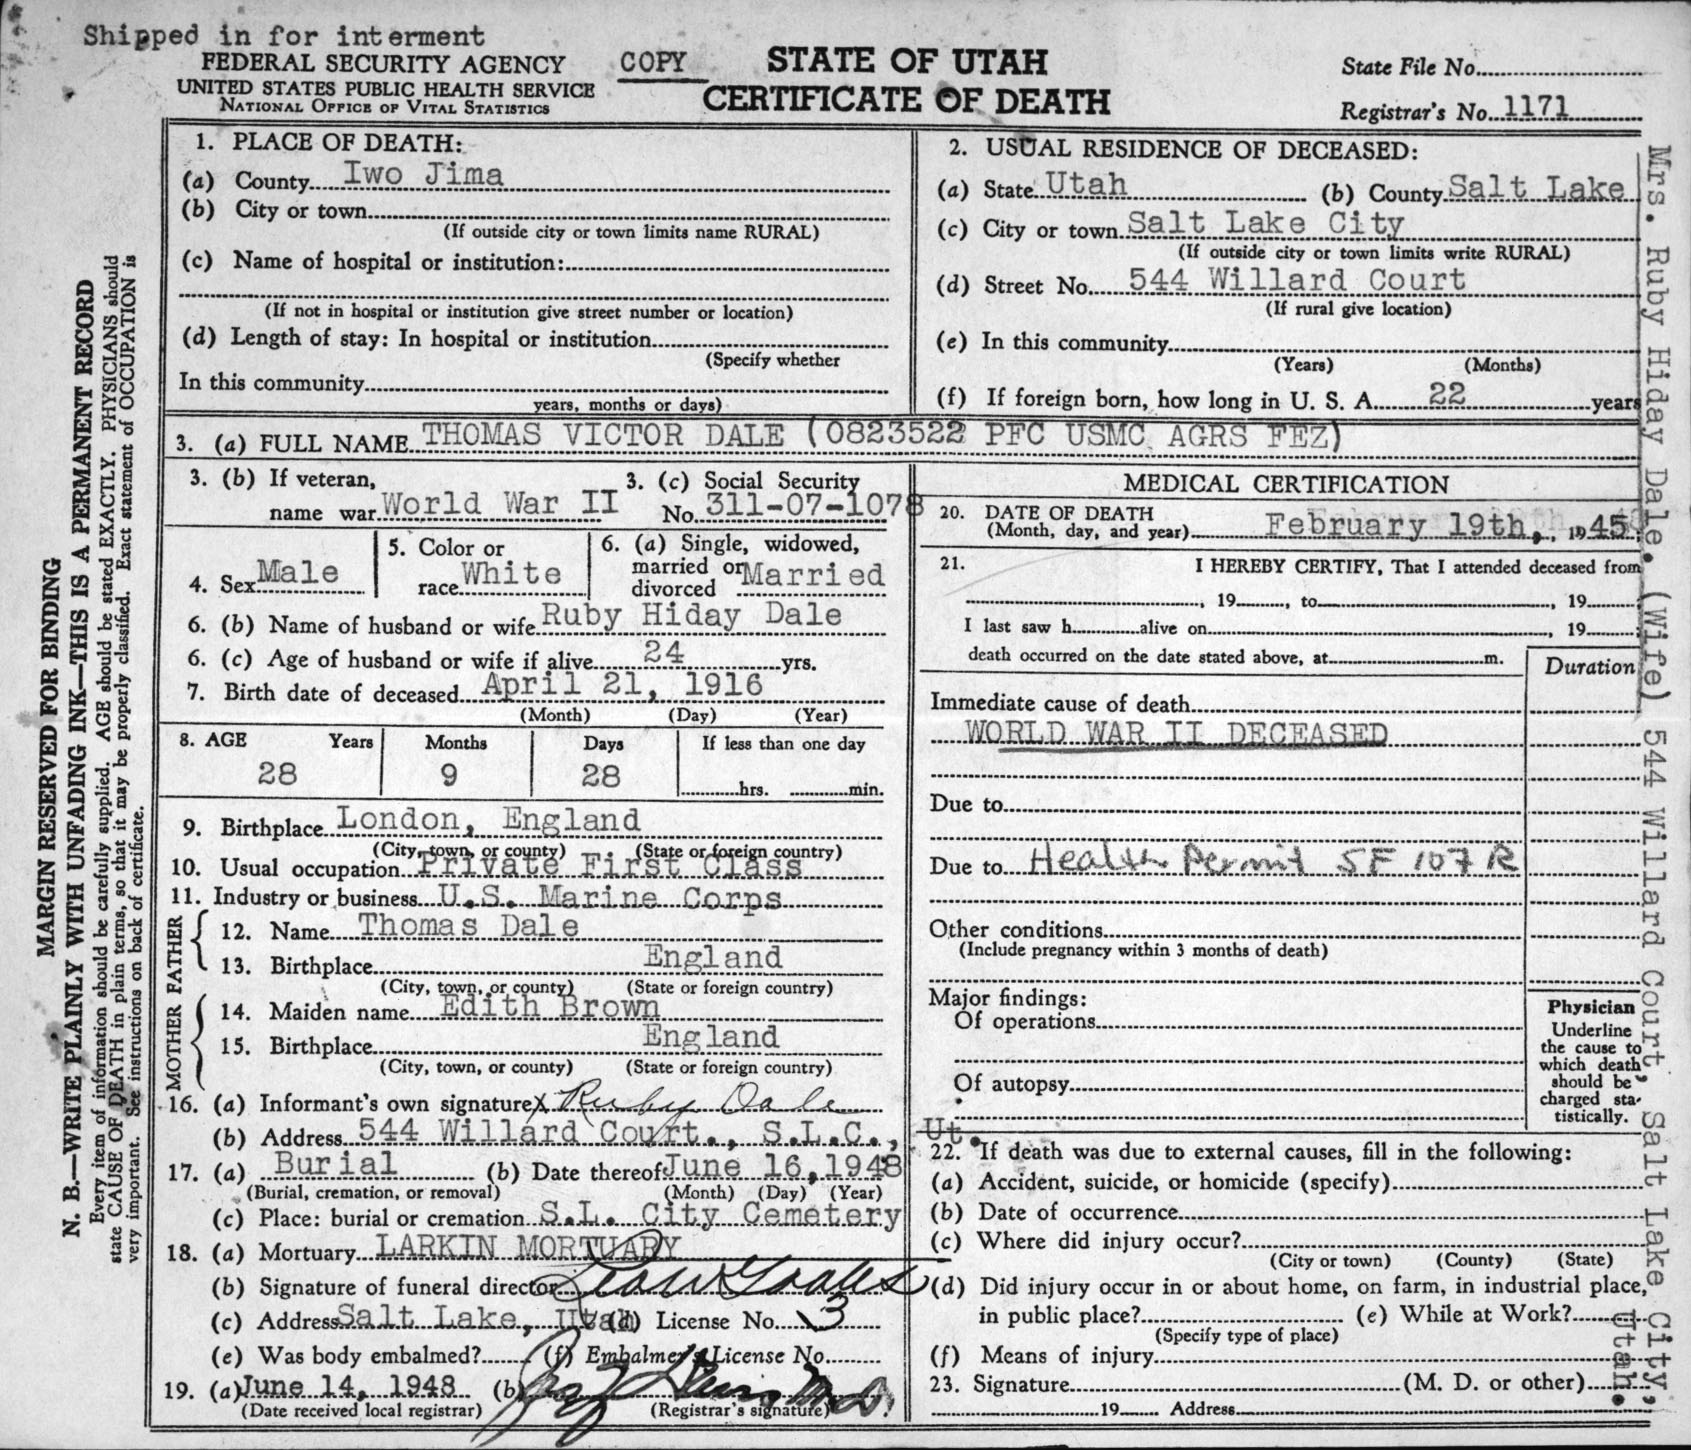 Shipped in for interment
FEDERAL SECURITY AGENCY
UNITED STATES PUBLIC HEALTH SERVICE
NATIONAL OFFICE OF VITAL STATISTICS
COPY
STATE OF UTAH
CERTIFICATE OF DEATH
State File No.
Registrar's No. 1171
MARGIN RESERVED FOR BINDING
N. B.—WRITE PLAINLY WITH UNFADING INK—THIS IS A PERMANENT RECORD
Every item of information should be carefully supplied. AGE should be stated EXACTLY. PHYSICIANS should
state CAUSE OF DEATH in plain terms, so that it may be properly classified. Exact statement of OCCUPATION is
very important. See instructions on back of certificate.
1. PLACE OF DEATH:
(a) County Iwo Jima
(b) City or town
(If outside city or town limits name RURAL)
(c) Name of hospital or institution:
(If not in hospital or institution give street number or location)
(d) Length of stay: In hospital or institution
(Specify whether
In this community
years, months or days)
2. USUAL RESIDENCE OF DECEASED:
(a) State Utah (b) County Salt Lake
(c) City or town Salt Lake City
(If outside city or town limits write RURAL)
(d) Street No. 544 Willard Court
(If rural give location)
(e) In this community
(Years) (Months)
(f) If foreign born, how long in U. S. A. 22 years
3. (a) FULL NAME THOMAS VICTOR DALE (0823522 PFC USMC AGRS FEZ)
3. (b) If veteran,
name war World War II
3. (c) Social Security
No. 311-07-1078
4. Sex Male
5. Color or
race White
6. (a) Single, widowed,
married or
divorced Married
6. (b) Name of husband or wife Ruby Hiday Dale
6. (c) Age of husband or wife if alive 24 yrs.
7. Birth date of deceased April 21, 1916
(Month) (Day) (Year)
8. AGE Years Months Days If less than one day
28 9 28 hrs. min.
9. Birthplace London, England
(City, town, or county) (State or foreign country)
10. Usual occupation Private First Class
11. Industry or business U.S. Marine Corps
FATHER
12. Name Thomas Dale
13. Birthplace England
(City, town, or county) (State or foreign country)
MOTHER
14. Maiden name Edith Brown
15. Birthplace England
(City, town, or county) (State or foreign country)
16. (a) Informant's own signature X Ruby Dale
(b) Address 544 Willard Court., S.L.C., Ut.
17. (a) Burial (b) Date thereof June 16, 1948
(Burial, cremation, or removal) (Month) (Day) (Year)
(c) Place: burial or cremation S.L. City Cemetery
18. (a) Mortuary LARKIN MORTUARY
(b) Signature of funeral director
(c) Address Salt Lake, Utah (d) License No. 3
(e) Was body embalmed? (f) Embalmer's License No.
19. (a) June 14, 1948 (b) M.D.
(Date received local registrar) (Registrar's signature)
MEDICAL CERTIFICATION
20. DATE OF DEATH
(Month, day, and year) February 19th, 1945
21. I HEREBY CERTIFY, That I attended deceased from
, 19 , to , 19
I last saw h alive on , 19 ;
death occurred on the date stated above, at m.
Duration
Immediate cause of death
WORLD WAR II DECEASED
Due to
Due to Health Permit SF 107 R
Other conditions
(Include pregnancy within 3 months of death)
Major findings:
Of operations
Of autopsy
Physician
Underline
the cause to
which death
should be
charged sta-
tistically.
22. If death was due to external causes, fill in the following:
(a) Accident, suicide, or homicide (specify)
(b) Date of occurrence
(c) Where did injury occur?
(City or town) (County) (State)
(d) Did injury occur in or about home, on farm, in industrial place,
in public place? (e) While at Work?
(Specify type of place)
(f) Means of injury
23. Signature (M. D. or other)
19 Address
Mrs. Ruby Hiday Dale. (Wife) 544 Willard Court Salt Lake City,
Utah.